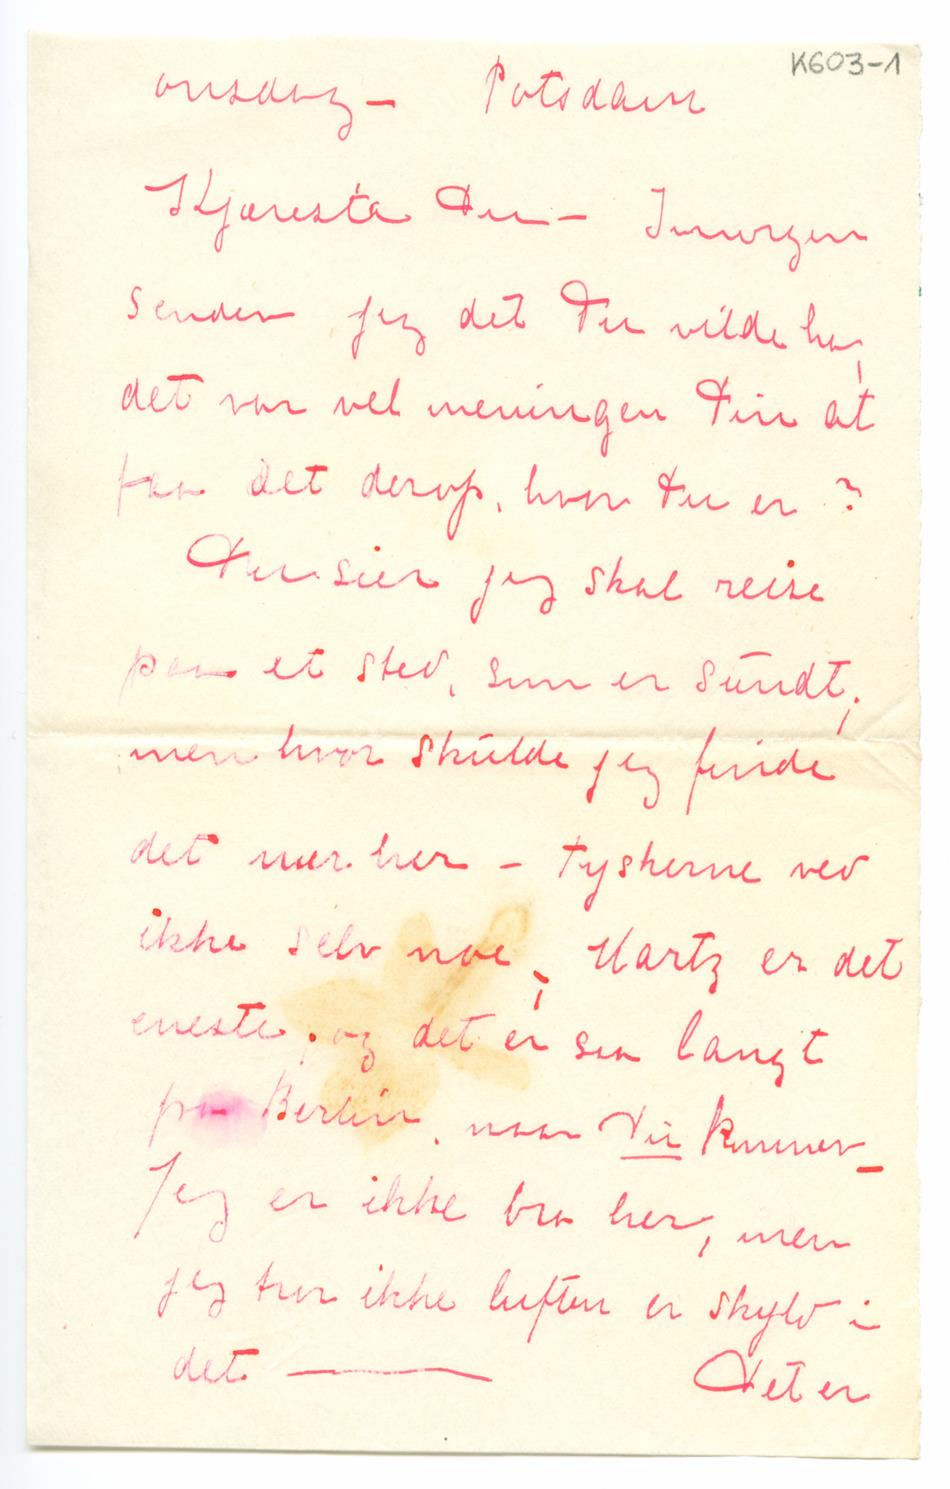 K603-1
onsdag – Potsdam
Kjæreste Du – Imorgen
sender jeg det Du vilde ha,
det var vel meningen Din at
faa det derop, hvor Du er ?
Du sier jeg skal reise
paa et sted, som er sundt,
men hvor skulde jeg finde
det nær her – tyskerne ved
ikke selv noe, Hartz er det
eneste, og det er saa langt
fra Berlin, naar Du kommer –
Jeg er ikke bra her, men
jeg tror ikke luften er skyld i
det —— Det er